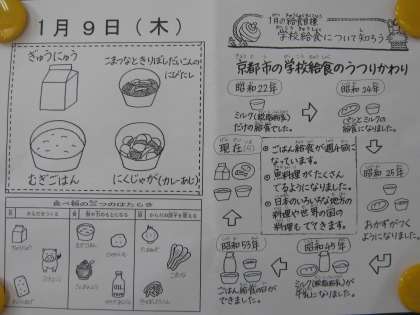 1月9日（木）
ぎゅうにゅう
こまつなときりぼしだいこんの
にびたし
むぎごはん
にくじゃが(カレーあじ)
食べ物の三つのはたらき
1月の給食目標
学校給食について知ろう
京都市の学校給食のうつりかわり
昭和22年
ミルク(脱脂粉乳)
だけの給食でした。
昭和24年
パンとミルクの
給食になりました。
昭和25年
おかずがつく
ようになりました。
昭和45年
ミルク(脱脂粉乳)が
牛乳になりました。
昭和53年
ごはん給食の日が
できました。
現在
ごはん給食が週4回に
なっています。
魚料理がたくさん
でるようになりました。
日本のいろいろな地方の
料理や世界の国の
料理もでてきます。